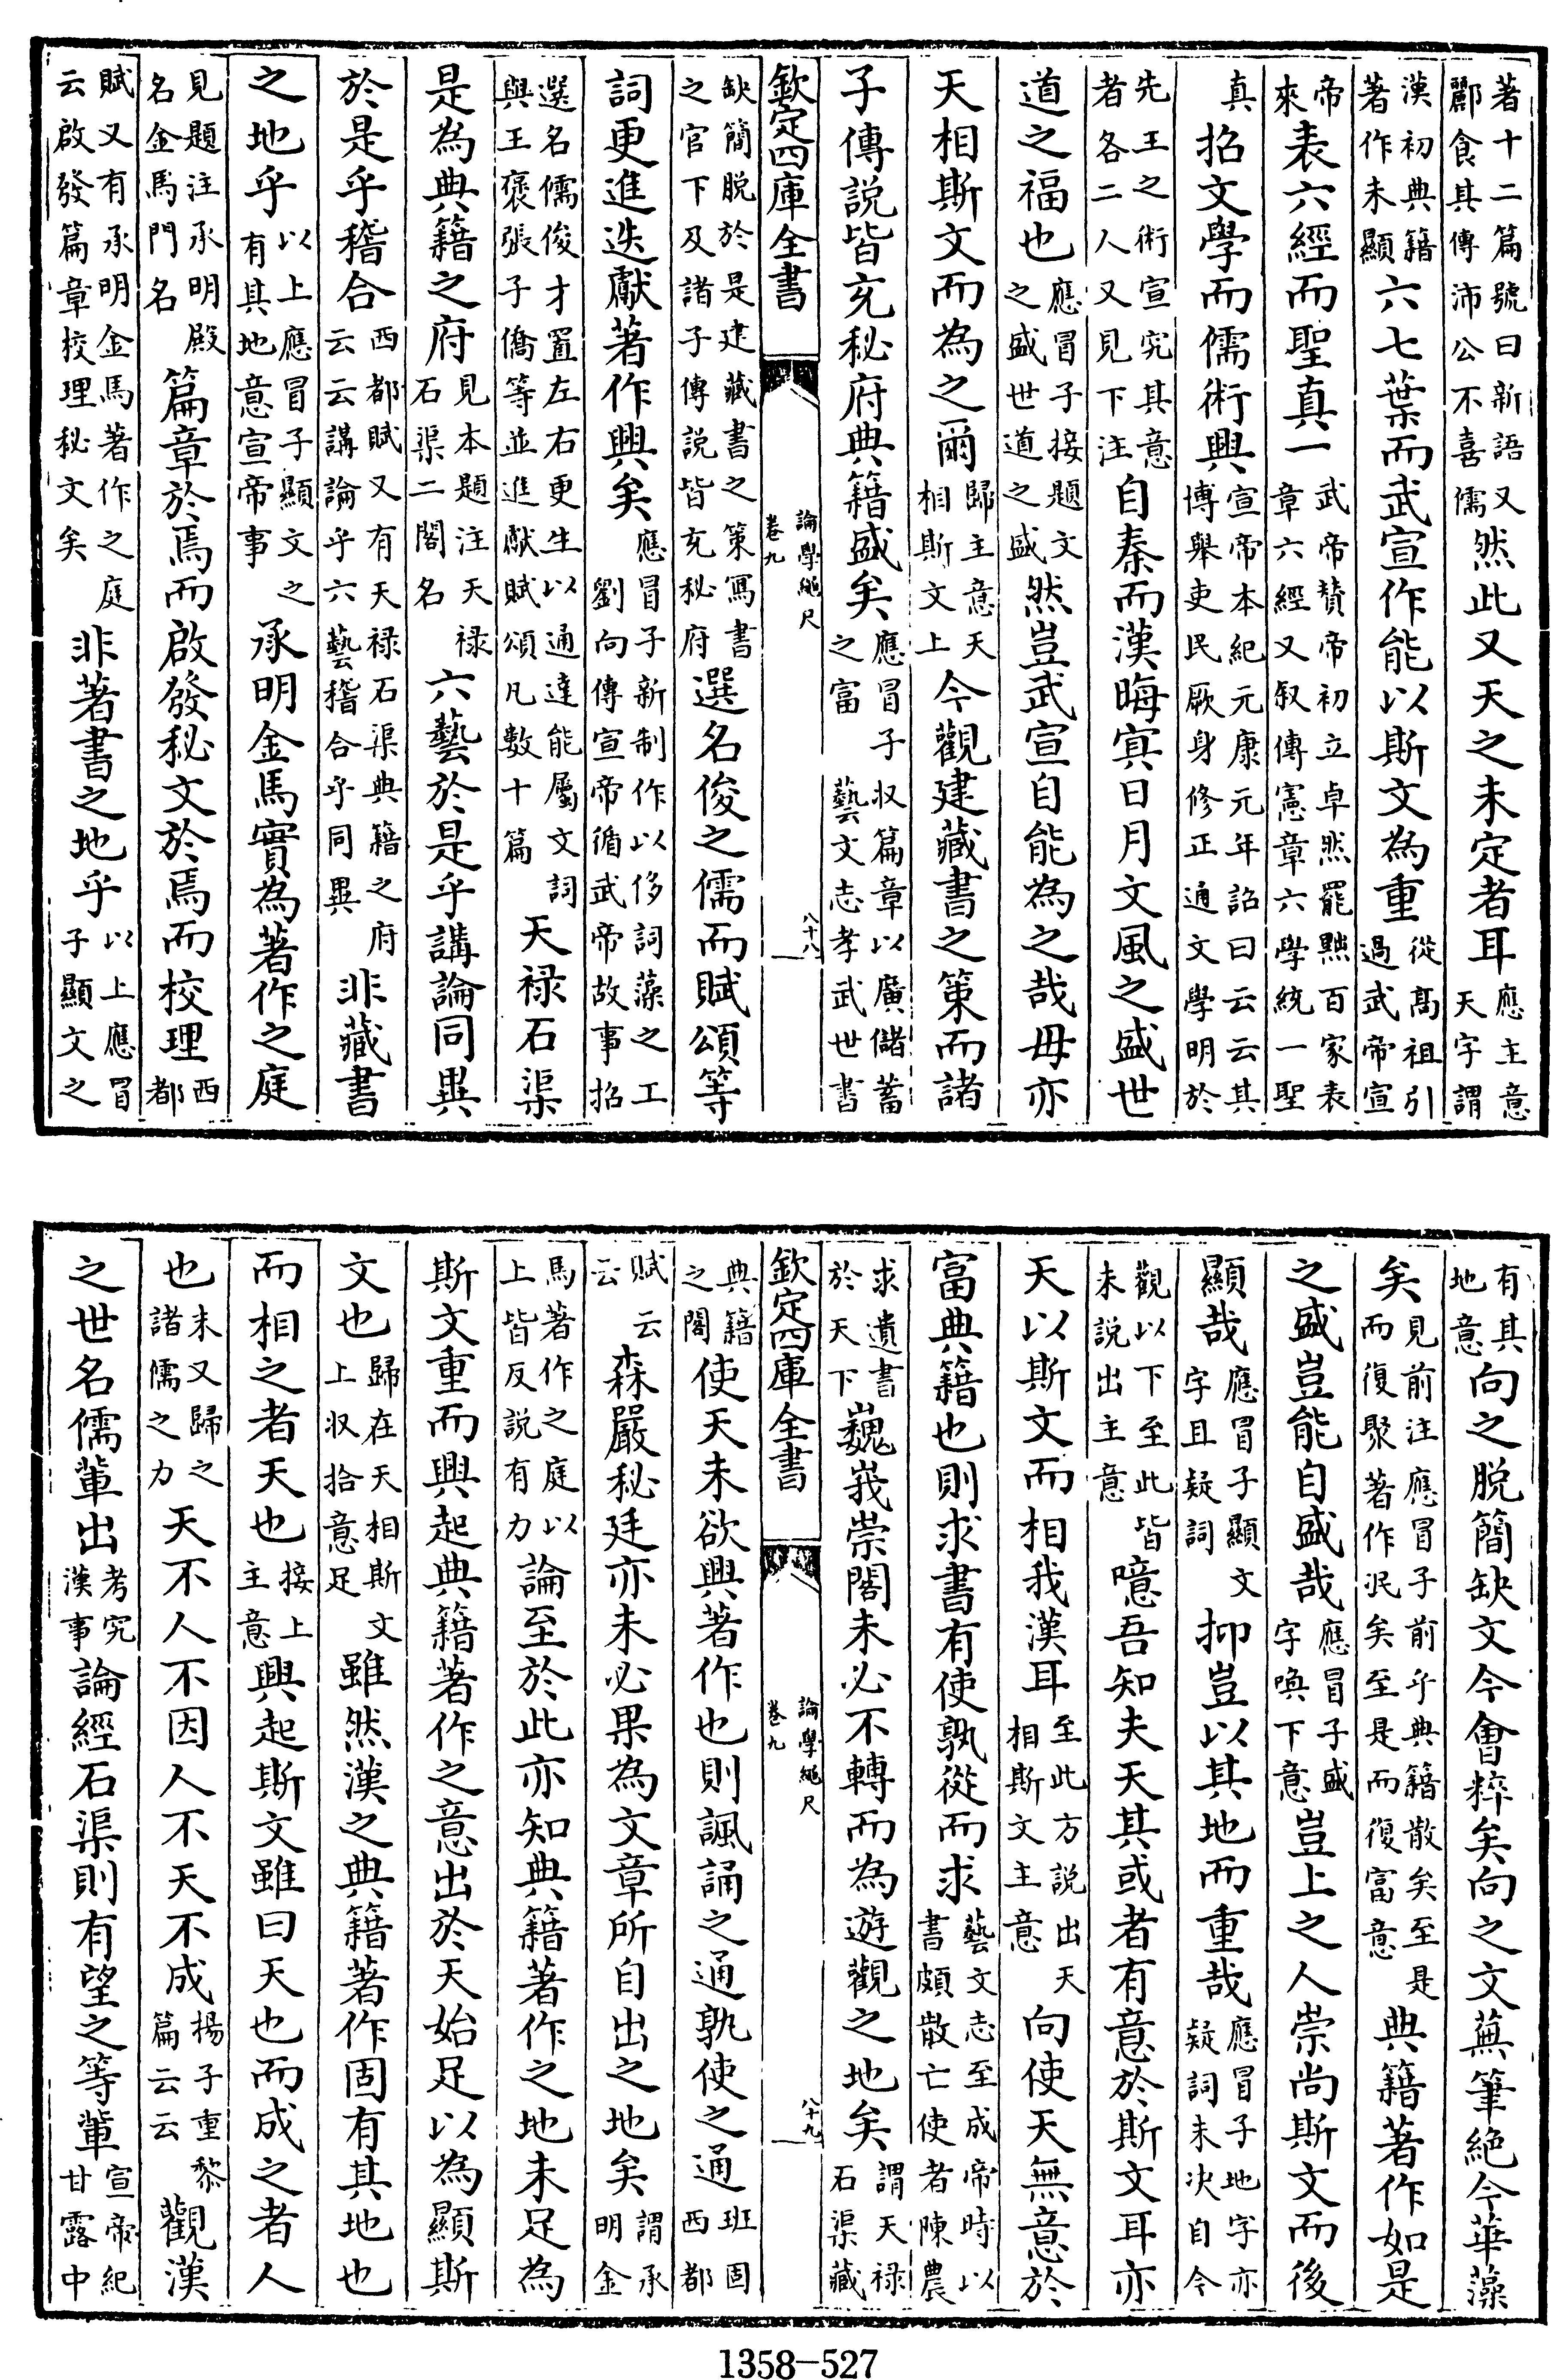 著十二篇號曰新語又酈食其傳沛公不喜儒然此又天之未定者耳應主意天字謂
漢初典籍著作未顯六七葉而武宣作能以斯文為重從髙祖引過武帝宣
帝來表六經而聖真一武帝贊帝初立卓然罷黜百家表章六經又叙傳憲章六學統一聖
真招文學而儒術興宣帝本紀元康元年詔曰云云其博舉吏民厥身修正通文學明於
先王之術宣究其意者各二人又見下注自秦而漢晦㝠日月文風之盛世
道之福也應冒子接題文之盛世道之盛然豈武宣自能為之哉毋亦
天相斯文而為之爾歸主意天相斯文上今觀建藏書之策而諸
子傳説皆充秘府典籍盛矣應冒子之富収篇章以廣儲蓄藝文志孝武世書
欽定四庫全書 論學繩尺 卷九 八十八
缺簡脱於是建藏書之策寫書之官下及諸子傳説皆充秘府選名俊之儒而賦頌等
詞更進迭獻著作興矣應冒子新制作以侈詞藻之工劉向傳宣帝循武帝故事招
選名儒俊才置左右更生以通達能屬文詞與王褒張子僑等並進獻賦頌凡數十篇天禄石渠
是為典籍之府見本題注天禄石渠二閣名六藝於是乎講論同異
於是乎稽合西都賦又有天禄石渠典籍之府云云講論乎六藝稽合乎同異非藏書
之地乎以上應冒子顯文之有其地意宣帝事承明金馬實為著作之庭
見題注承明殿名金馬門名篇章於焉而啟發秘文於焉而校理西都
賦又有承明金馬著作之庭云啟發篇章校理秘文矣非著書之地乎以上應冒子顯文之
有其地意向之脱簡缺文今會粹矣向之文蕪筆絶今華藻
矣見前注應冒子前乎典籍散矣至是而復聚著作泯矣至是而復富意典籍著作如是
之盛豈能自盛哉應冒子盛字喚下意豈上之人崇尚斯文而後
顯哉應冒子顯文字且疑詞抑豈以其地而重哉應冒子地字亦疑詞未决自今
觀以下至此皆未説出主意噫吾知夫天其或者有意於斯文耳亦
天以斯文而相我漢耳至此方説出天相斯文主意向使天無意於
富典籍也則求書有使孰從而求藝文志至成帝時以書頗散亡使者陳農
求遺書於天下巍峩崇閣未必不轉而為遊觀之地矣謂天禄石渠藏
欽定四庫全書 論學繩尺 卷九 八十九
典籍之閣使天未欲興著作也則諷誦之通孰使之通班固西都
賦云云森嚴秘廷亦未必果為文章所自出之地矣謂承明金
馬著作之庭以上皆反説有力論至於此亦知典籍著作之地未足為
斯文重而興起典籍著作之意出於天始足以為顯斯
文也歸在天相斯文上収拾意足雖然漢之典籍著作固有其地也
而相之者天也接上主意興起斯文雖曰天也而成之者人
也末又歸之諸儒之力天不人不因人不天不成揚子重黎篇云云觀漢
之世名儒輩出考究漢事論經石渠則有望之等輩宣帝紀甘露中
1358-527